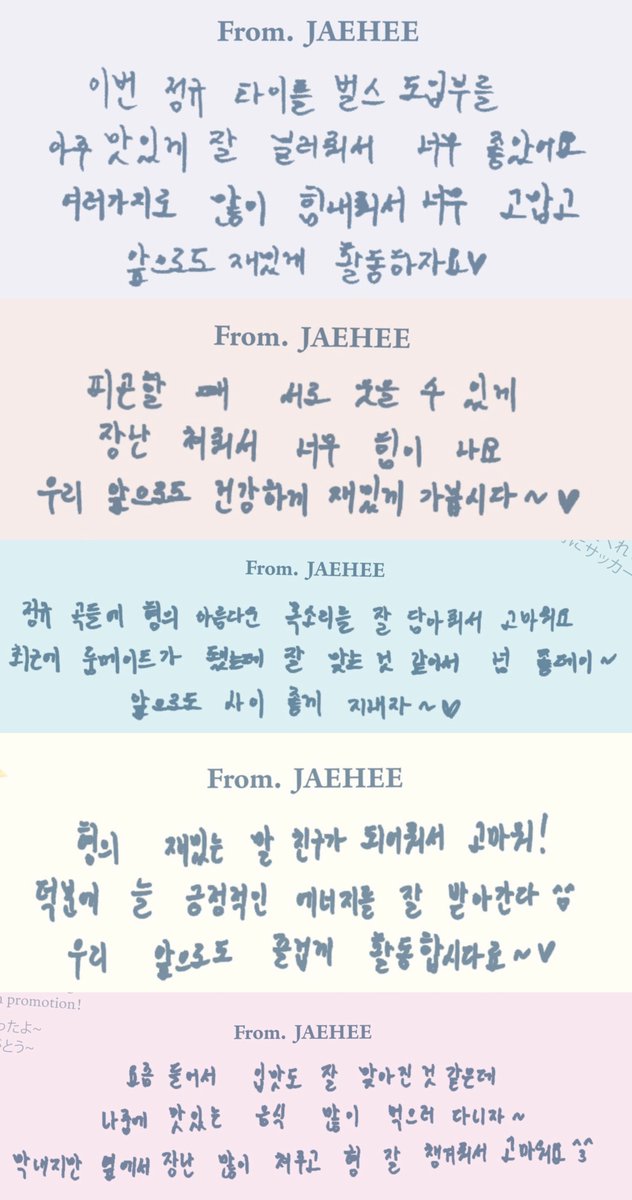 From. JAEHEE
이번 정규 타이틀 벌스 도입부를
아주 맛있게 잘 눌러줘서 너무 좋았어요
여러가지로 많이 힘내줘서 너무 고맙고
앞으로도 재밌게 활동하자요♥
From. JAEHEE
피곤할 때 서로 웃을 수 있게
장난 쳐줘서 너무 힘이 나요
우리 앞으로도 건강하게 재밌게 가봅시다~♥
くれ
にサッカー
From. JAEHEE
정규 곡들에 형의 아름다운 목소리를 잘 담아줘서 고마워요
최근에 룸메이트가 됐는데 잘 맞는 것 같아서 넘 좋데이~
앞으로도 사이 좋게 지내자~♥
From. JAEHEE
형의 재밌는 말 친구가 되어줘서 고마워!
덕분에 늘 긍정적인 에너지를 잘 받아간다 ^^
우리 앞으로도 즐겁게 활동합시다료~♥
promotion!
ったよ~
とう~
From. JAEHEE
요즘 들어서 입맛도 잘 맞아진 것 같은데
나중에 맛있는 음식 많이 먹으러 다니자~
막내지만 옆에서 장난 많이 쳐주고 형 잘 챙겨줘서 고마워요 ^3^